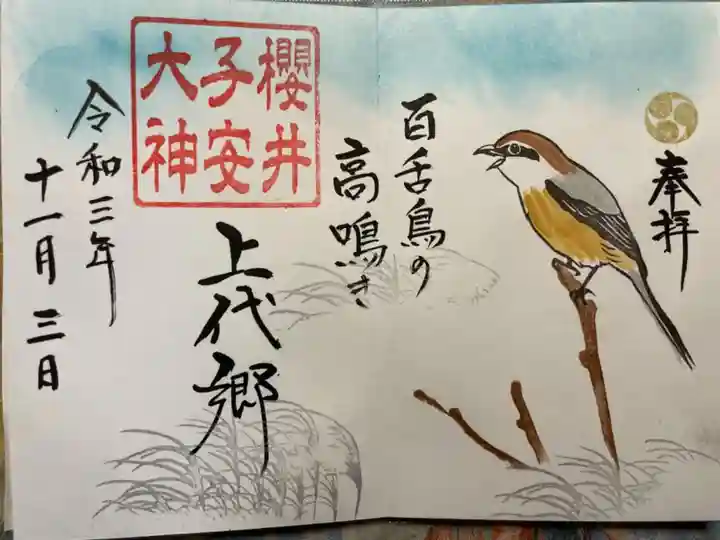 奉拝
百舌鳥の
高鳴き
櫻井
子安
大神
上代郷
令和三年
十一月三日